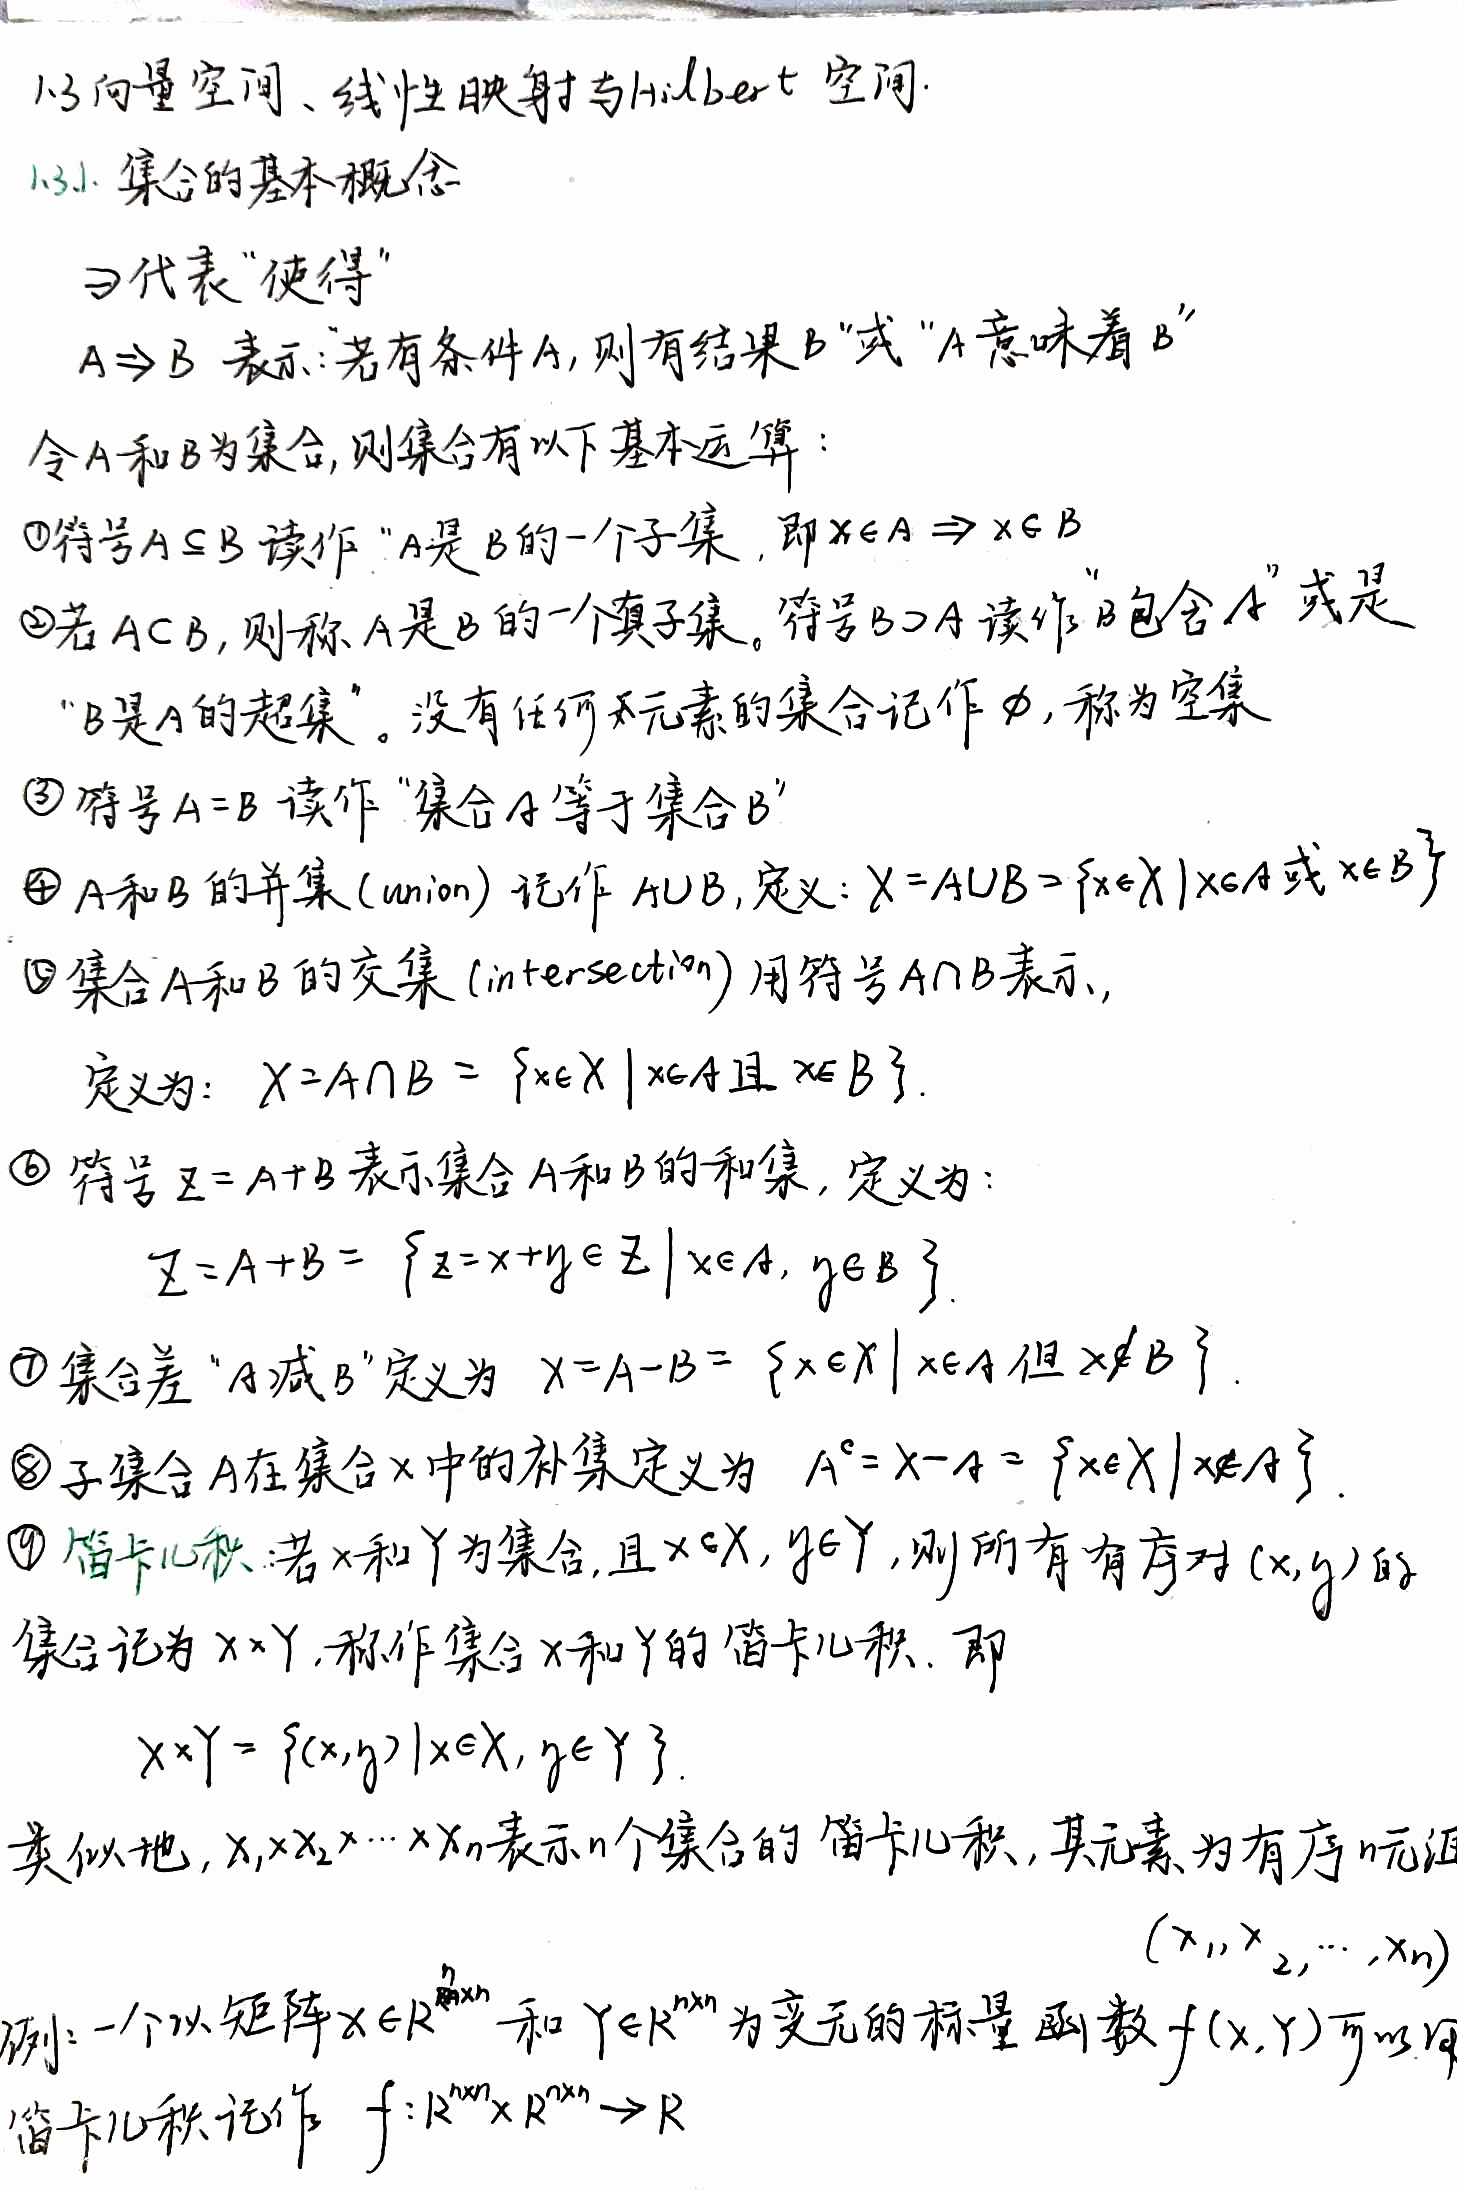 1.3 向量空间、线性映射与Hilbert 空间.
1.3.1. 集合的基本概念
∋代表“使得”
A⇒B 表示:“若有条件A,则有结果B”或“A意味着B”
令A和B为集合,则集合有以下基本运算:
①符号A⊆B 读作“A是B的一个子集,即x∈A ⇒ x∈B
②若A⊂B,则称A是B的一个真子集。符号B⊃A 读作“B包含A”或是
“B是A的超集”。没有任何元素的集合记作 φ,称为空集
③符号A=B 读作“集合A等于集合B”
④A和B的并集(union) 记作 A∪B,定义: X=A∪B={x∈X|x∈A或x∈B}
⑤集合A和B的交集(intersection)用符号A∩B表示,
定义为: X=A∩B= {x∈X|x∈A且x∈B}.
⑥ 符号Z=A+B表示集合A和B的和集,定义为:
Z=A+B= {z=x+y∈Z|x∈A, y∈B}.
⑦集合差“A减B”定义为 X=A-B= {x∈X|x∈A但x∉B}.
⑧子集合A在集合X中的补集定义为 Aᶜ=X-A= {x∈X|x∉A}.
⑨ 笛卡儿积:若X和Y为集合,且x∈X, y∈Y,则所有有序对(x,y)的
集合记为X×Y,称作集合X和Y的笛卡儿积. 即
X×Y= {(x,y)|x∈X, y∈Y}.
类似地, X₁×X₂×…×Xn表示n个集合的笛卡儿积,其元素为有序n元组
(x₁, x₂, …, xn)
例:一个以矩阵X∈Rⁿˣⁿ 和 Y∈Rⁿˣⁿ为变元的标量函数f(X,Y)可以用
笛卡儿积记作 f:Rⁿˣⁿ×Rⁿˣⁿ→R